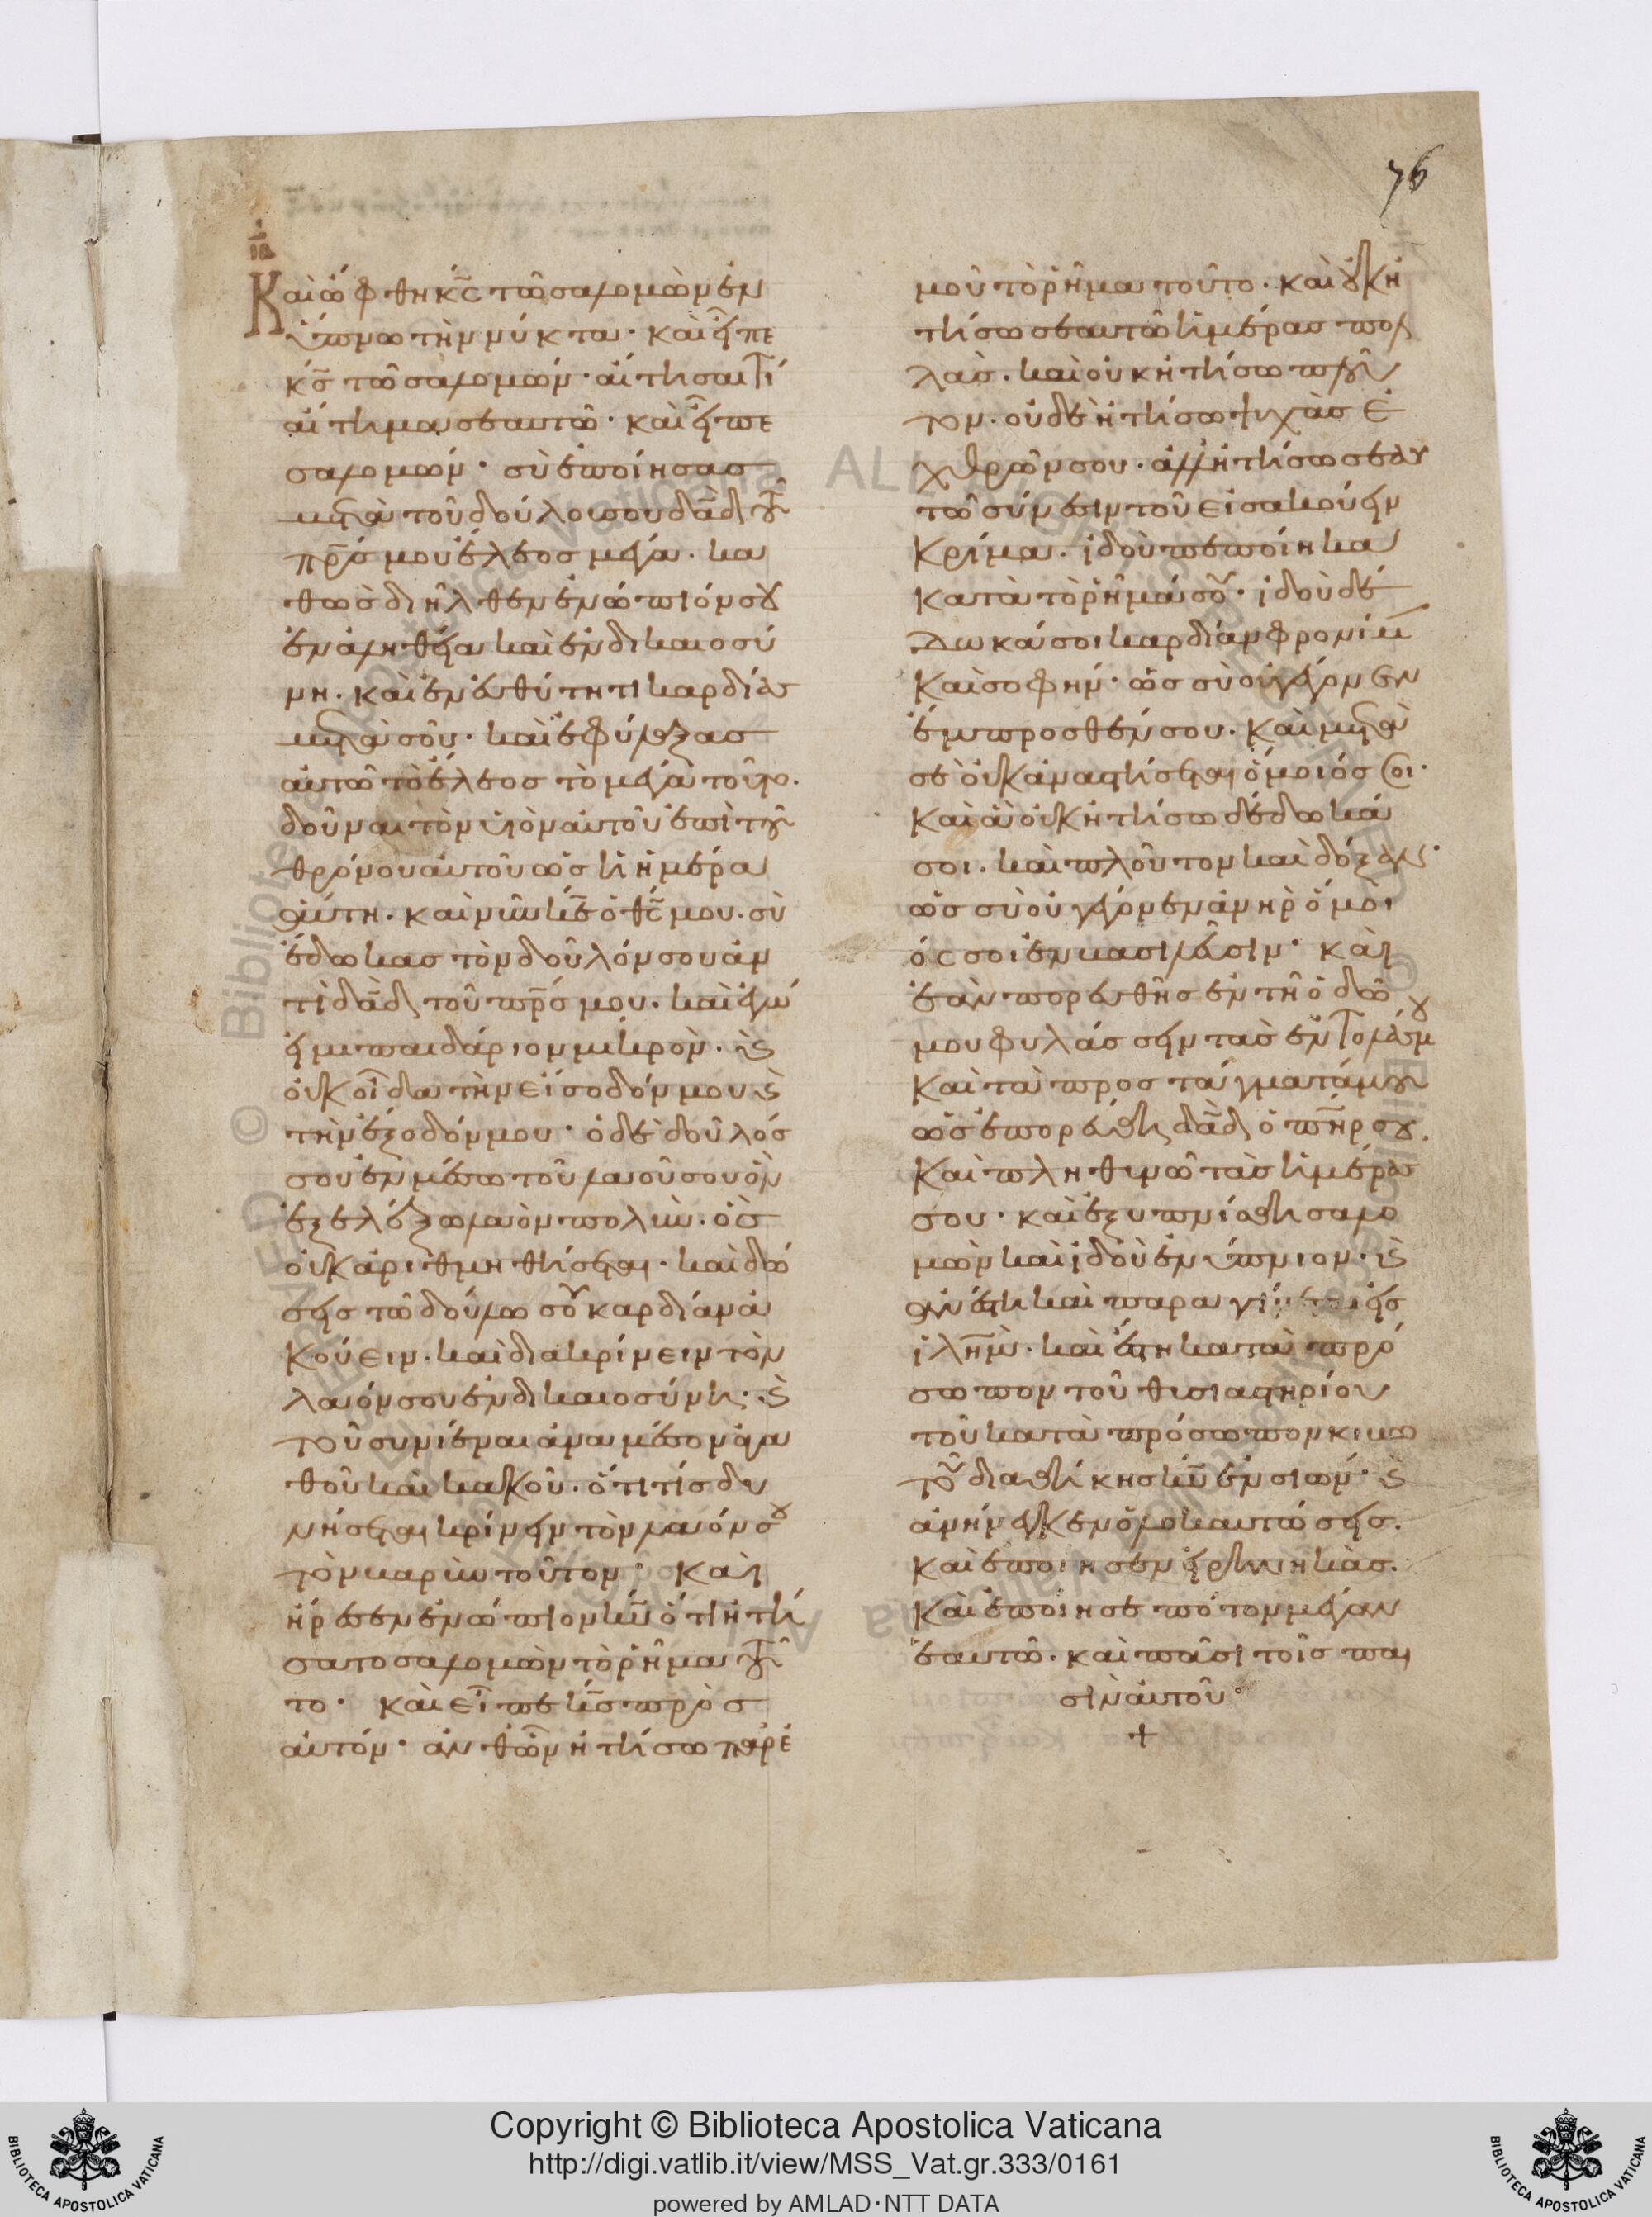 76
ιβ
Καὶ ὤφθη κ̅ς̅ τῶ σαλομὼν ἐν
ὕπνω τὴν νύκτα· καὶ εἶπε
κ̅ς̅ τῶ σαλομών· αἴτησαι τί
αἴτημα σεαυτῶ· καὶ εἶπε
σαλομών· σὺ ἐποίησας
μετὰ τοῦ δούλου σου δα̅δ̅ τοῦ
π̅ρ̅ς̅ μου ἔλεος μέγα. κα
θὼς διῆλθεν ἐνώπιόν σου
ἐν ἀληθεία καὶ ἐν δικαιοσύ
νη. καὶ ἐν εὐθύτητι καρδίας
μετὰ σοῦ· καὶ ἐφύλαξας
αὐτῶ τὸ ἔλεος τὸ μέγα τοῦτο.
δοῦναι τὸν υἱὸν αὐτοῦ ἐπὶ τοῦ
θρόνου αὐτοῦ ὡς ἡ ἡμέρα
αὕτη. καὶ νῦν κ̅ε̅ ὁ θ̅ς̅ μου. σὺ
ἔδωκας τὸν δοῦλόν σου ἀν
τὶ δα̅δ̅ τοῦ π̅ρ̅ς̅ μου. καὶ ἐγώ
εἰμι παιδάριον μικρὸν. ϗ
οὐκ οἶδα τὴν εἴσοδόν μου ϗ
τὴν ἔξοδόν μου· ὁ δὲ δοῦλός
σου ἐν μέσω τοῦ λαοῦ σου ὃν
ἐξελέξω λαὸν πολὺν. ὃς
οὐκ ἀριθμηθήσεται· καὶ δώ
σεις τῶ δούλω σου καρδίαν ἀ
κούειν. καὶ διακρίνειν τὸν
λαόν σου ἐν δικαιοσύνη· ϗ
τοῦ συνιέναι ἀνα μέσον ἀγα
θοῦ καὶ κακοῦ. ὅτι τίς δυ
νήσεται κρίνειν τὸν λαόν σου
τὸν βαρὺν τοῦτον· Καὶ
ἤρεσεν ἐνώπιον κ̅υ̅ ὅτι ἠτή
σατο σαλομὼν τὸ ῥῆμα τοῦ
το· καὶ εἶπε κ̅ς̅ πρὸς
αὐτόν· ἀνθ' ὧν ἠτήσω παρ' ἐ
μοῦ τὸ ῥῆμα τοῦτο. καὶ οὐκ ἠ
τήσω σεαυτῶ ἡμέρας πολ
λὰς. καὶ οὐκ ἠτήσω πλοῦ
τον. οὐδὲ ἠτήσω ψυχὰς ἐ
χθρῶν σου. ἀλλ' ἠτήσω σεαυ
τῶ σύνεσιν τοῦ εἰσακούειν
κρίμα. ἰδοὺ πεποίηκα
κατὰ τὸ ῥῆμά σου· ἰδοὺ δέ
δωκά σοι καρδίαν φρονίμην
καὶ σοφήν· ὡς σὺ οὐ γέγονεν
ἔμπροσθέν σου. καὶ μετὰ
σὲ οὐκ ἀναστήσεται ὅμοιός σοι·
καὶ ἃ οὐκ ἠτήσω δέδωκά
σοι. καὶ πλοῦτον καὶ δόξαν·
ὡς σὺ οὐ γέγονεν ἀνὴρ ὅμοι
ός σοι ἐν βασιλεῦσιν· καὶ
ἐὰν πορευθῆς ἐν τῆ ὁδῶ
μου φυλάσσειν τὰς ἐντολάς μου
καὶ τὰ προστάγματά μου
ὡς ἐπορεύθη δα̅δ̅ ὁ π̅η̅ρ̅ σου.
καὶ πληθυνῶ τὰς ἡμέρας
σου· καὶ ἐξυπνίσθη σαλο
μὼν καὶ ἰδοὺ ἐνύπνιον· ϗ
ἀνέστη καὶ παραγίνεται εἰς
ἰλη̅μ̅. καὶ ἔστη κατὰ πρό
σωπον τοῦ θυσιαστηρίου
τοῦ κατὰ πρόσωπον κιβω
τοῦ διαθήκης κ̅υ̅ ἐν σιών· ϗ
ἀνήνεγκεν ὁλοκαυτώσεις.
καὶ ἐποίησεν εἰρηνικὰς.
καὶ ἐποίησε πότον μέγαν
ἑαυτῶ. καὶ πᾶσι τοῖς παι
σὶν αὐτοῦ·
+
Copyright © Biblioteca Apostolica Vaticana
http://digi.vatlib.it/view/MSS_Vat.gr.333/0161
powered by AMLAD·NTT DATA